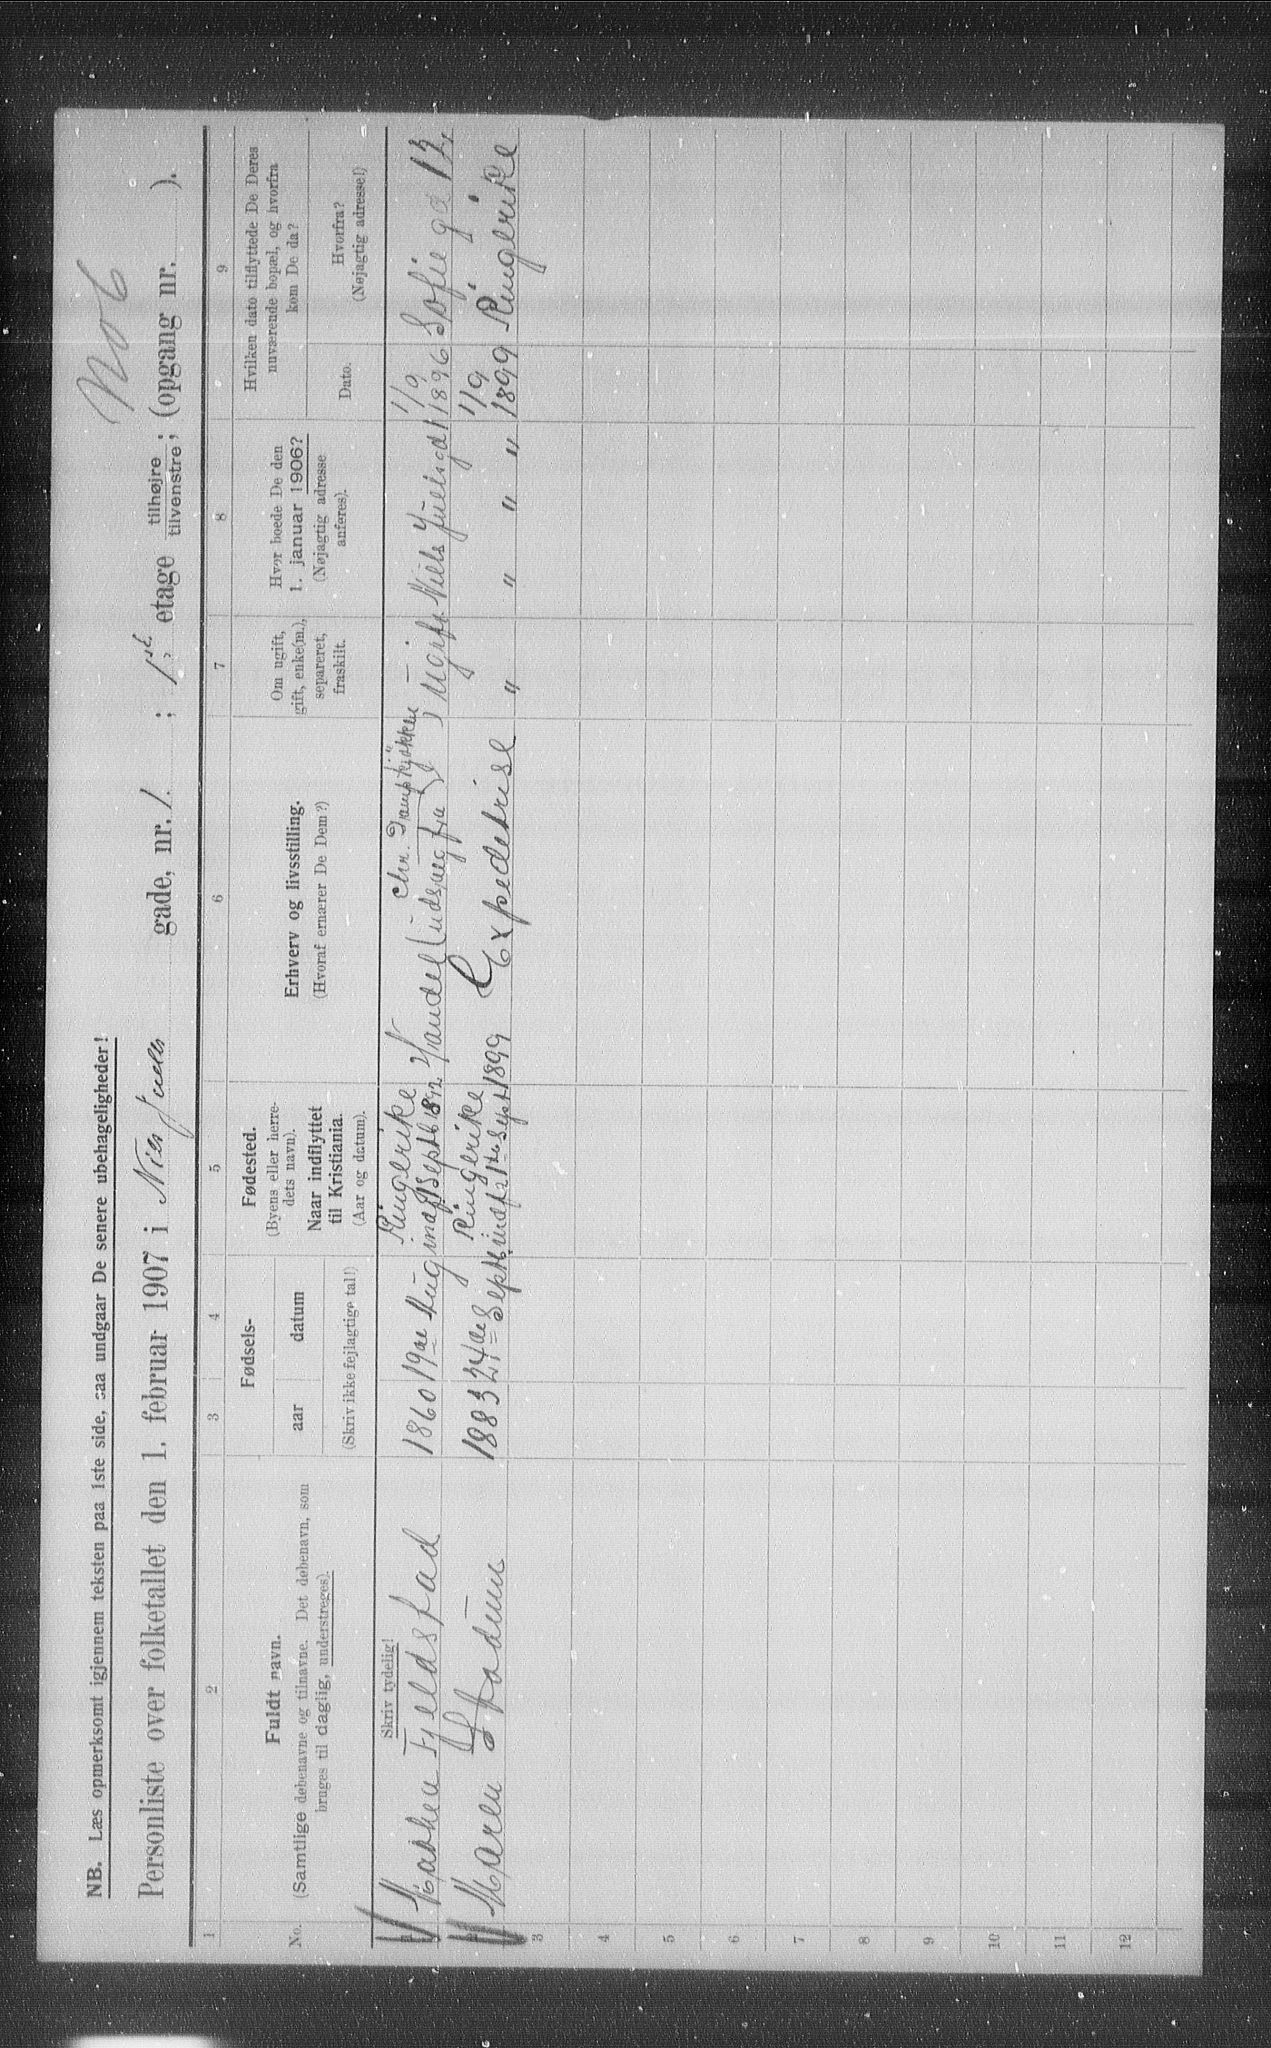 No 6
NB. Læs opmerksomt igjennem teksten paa 1ste side, saa undgaar De senere ubehageligheder!
Personliste over folketallet den 1. februar 1907 i Niels Juels gade, nr. 1. ; 1ste etage tilhøjre tilvenstre; (opgang nr. ).
1 2 3 4 5 6 7 8 9
No.
Fuldt navn.
(Samtlige døbenavne og tilnavne. Det døbenavn, som
bruges til daglig, understreges).
Fødsels-
aar datum
(Skriv ikke fejlagtige tal!)
Fødested.
(Byens eller herre-
dets navn).
Naar indflyttet
til Kristiania.
(Aar og datum).
Erhverv og livsstilling.
(Hvoraf ernærer De Dem?)
Om ugift,
gift, enke(m.),
separeret,
fraskilt.
Hvor boede De den
1. januar 1906?
(Nøjagtig adresse
anføres).
Hvilken dato tilflyttede De Deres
nuværende bopæl, og hvorfra
kom De da?
Dato.
Hvorfra?
(Nøjagtig adresse!)
Skriv tydelig!
1 Fjeldstad 1860 19de Aug Ringerike indf Septb 1892 Handel (udsalg fra Chr. Dampkjøkken) Ugift Niels Juels gd 1 1/9 1896 Sofie gd 12,
2 Maren 1883 24de Septb. Ringerike indf 1ste Sept 1899 Expeditrise " " " " 1/9 1899 Ringerike
3
4
5
6
7
8
9
10
11
12